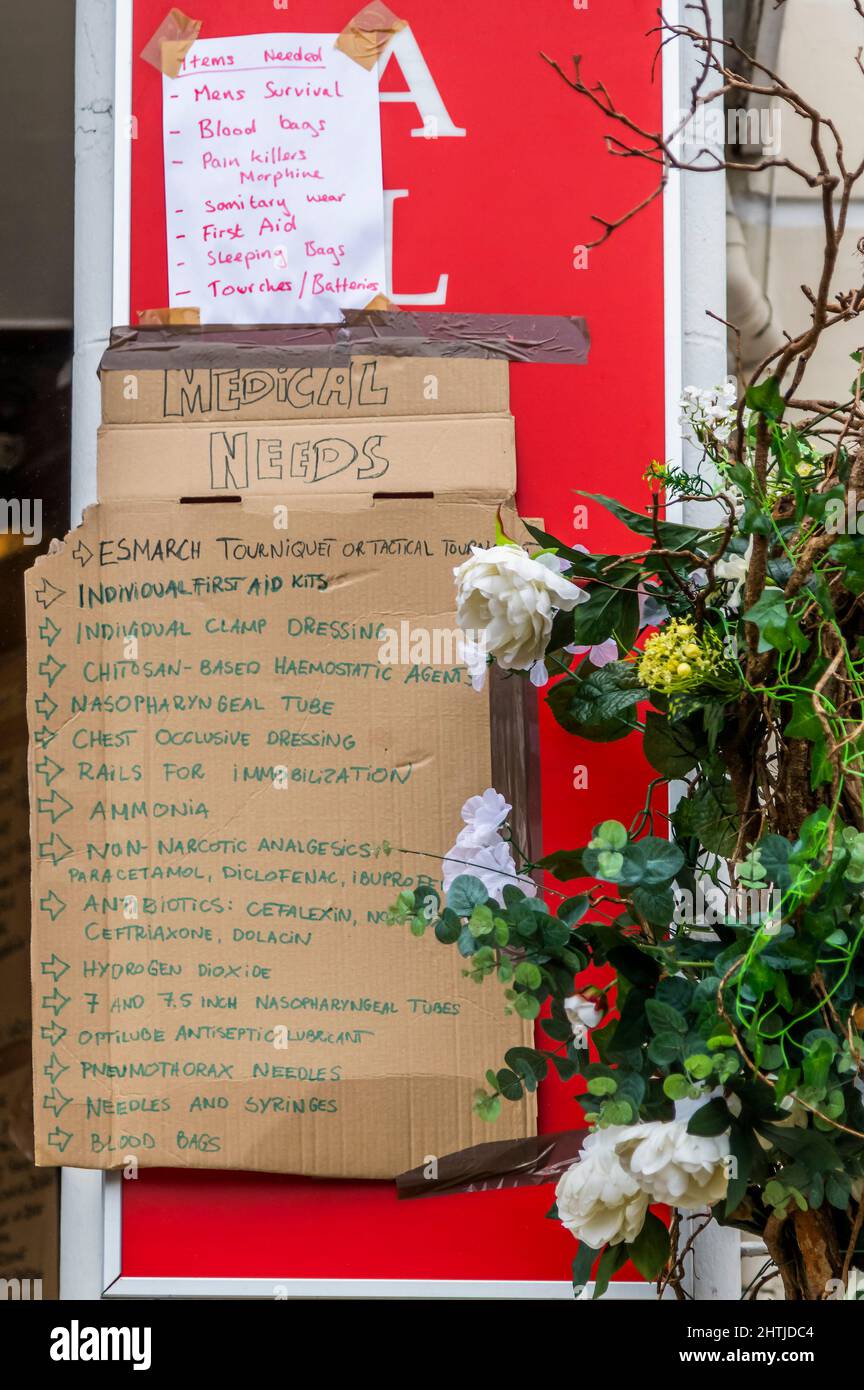 A
L
Items Needed
- Mens Survival
- Blood bags
- Pain killers
Morphine
- Sanitary wear
- First Aid
- Sleeping Bags
- Tourches/Batteries
MEDICAL
NEEDS
⇨ ESMARCH TOURNIQUET OR TACTICAL TOURN
⇨ INDIVIDUAL FIRST AID KITS
⇨ INDIVIDUAL CLAMP DRESSING
⇨ CHITOSAN-BASED HAEMOSTATIC AGENTS
⇨ NASOPHARYNGEAL TUBE
⇨ CHEST OCCLUSIVE DRESSING
⇨ RAILS FOR IMMOBILIZATION
⇨ AMMONIA
⇨ NON-NARCOTIC ANALGESICS
PARACETAMOL, DICLOFENAC, IBUPROFE
⇨ ANTIBIOTICS: CEFALEXIN, NO
CEFTRIAXONE, DOLACIN
⇨ HYDROGEN DIOXIDE
⇨ 7 AND 7.5 INCH NASOPHARYNGEAL TUBES
⇨ OPTILUBE ANTISEPTIC LUBRICANT
⇨ PNEUMOTHORAX NEEDLES
⇨ NEEDLES AND SYRINGES
⇨ BLOOD BAGS
alamy
Image ID: 2HTJDC4
www.alamy.com